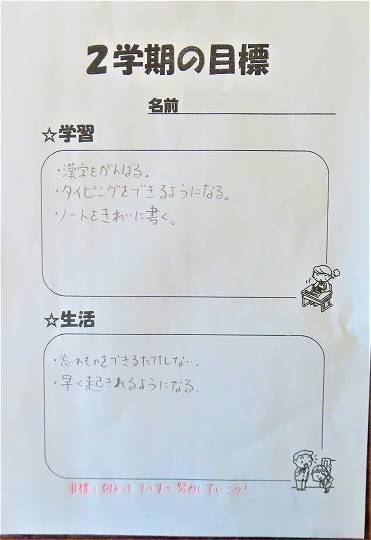 2学期の目標
名前
☆学習
・漢字をがんばる.
・タイピングをできるようになる。
・ノートをきれいに書く。
☆生活
・忘れものをできるだけしない。
・早く起きれるようになる。
目標に向かって 1つずつ 努力していこう!